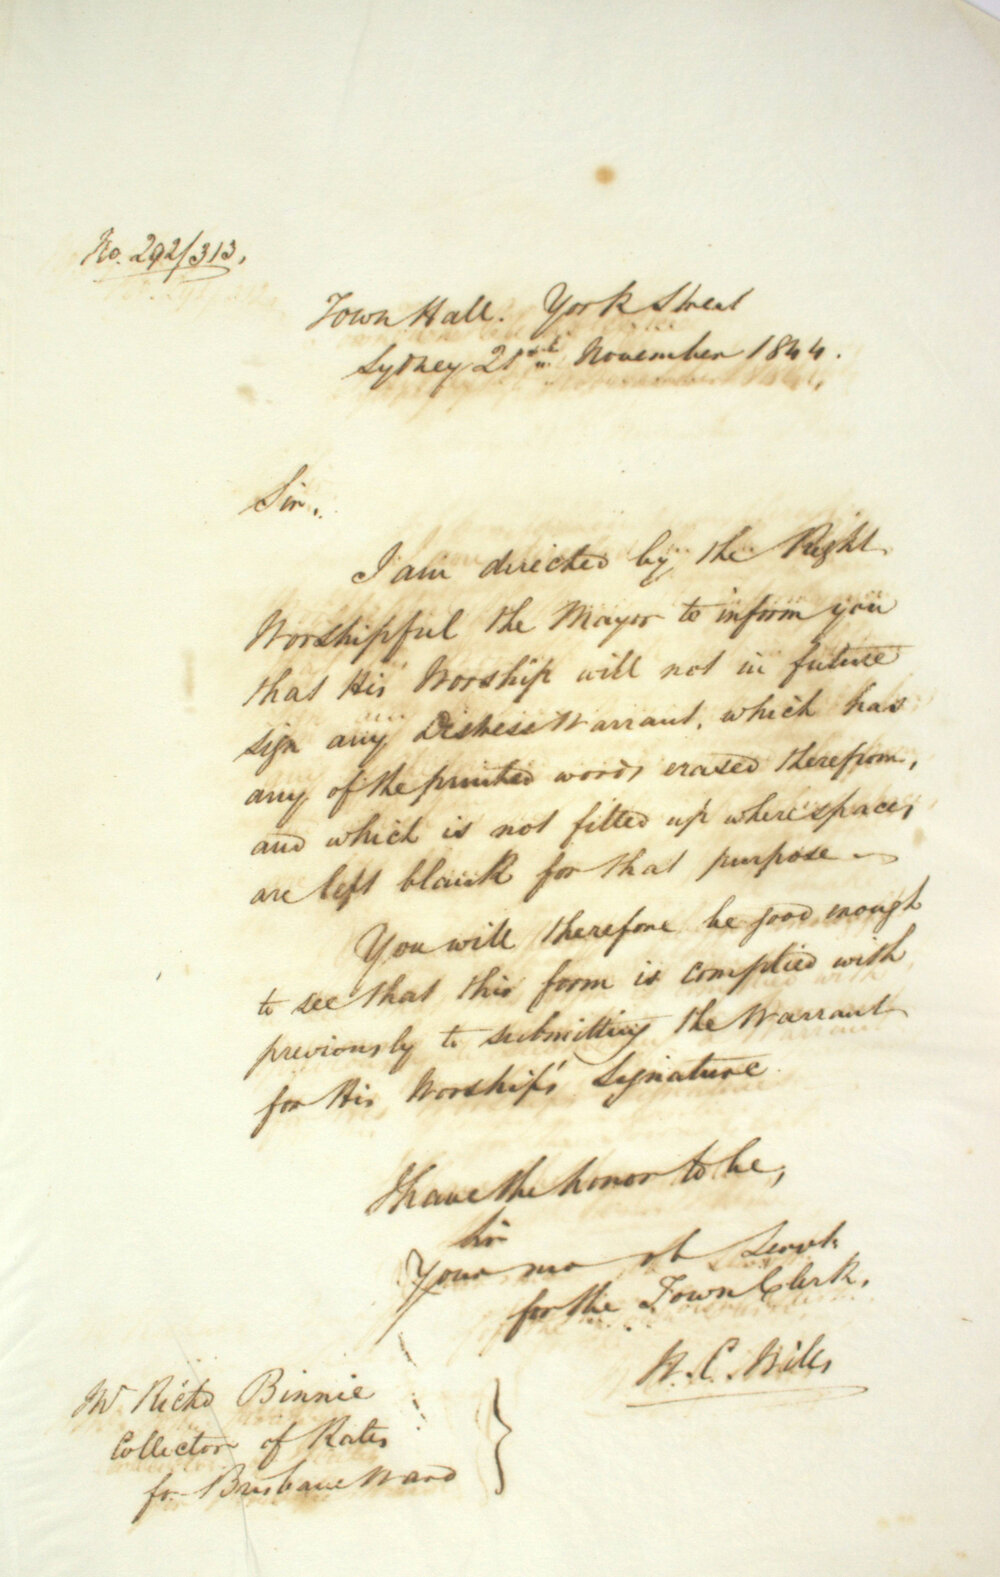 No. 292/313.
Town Hall. York Street
Sydney 21st November 1844.
Sir,
I am directed by the Right
Worshipful the Mayor to inform you
that His Worship will not in future
sign any Distress Warrant, which has
any of the printed words erased therefrom,
and which is not filled up where spaces
are left blank for that purpose
You will therefore be good enough
to see that this form is complied with
previously to submitting the Warrant
for His Worship's Signature
I have the honor to be,
Sir
Your mo ob Servt
for the Town Clerk,
W. C. Wills
Mr Richd Binnie
Collector of Rates
for Brisbane Ward